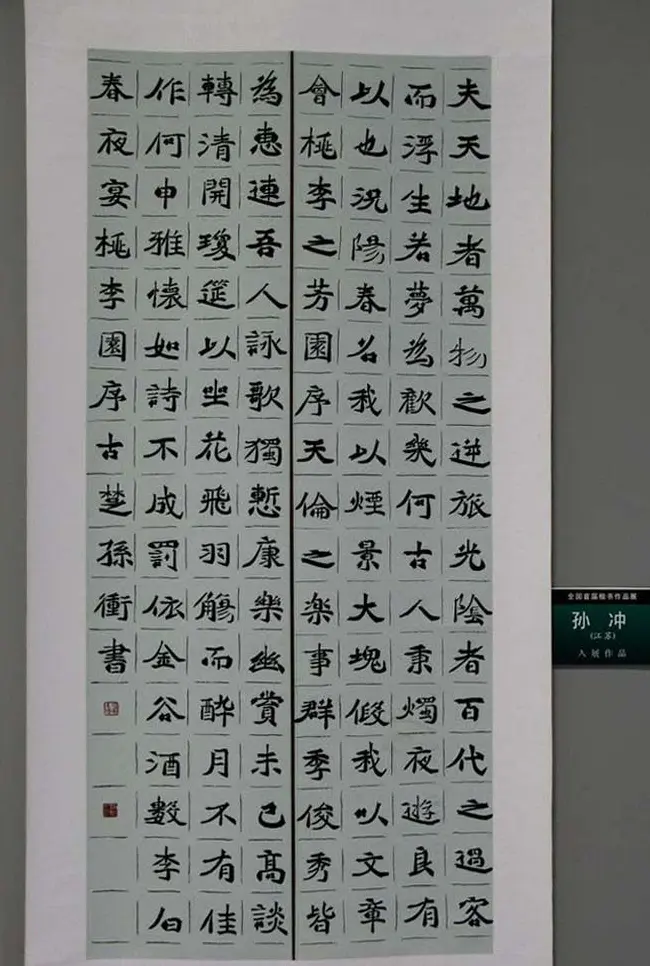 夫天地者萬物之逆旅光陰者百代之過客
而浮生若夢為歡幾何古人秉燭夜遊良有
以也況陽春召我以煙景大塊假我以文章
會桃李之芳園序天倫之楽事群季俊秀皆
為惠連吾人詠歌獨慙康樂幽賞未已高談
轉清開瓊筵以坐花飛羽觴而醉月不有佳
作何申雅懷如詩不成罰依金谷酒數李白
春夜宴桃李園序古楚孫衝書
全国首届楷书作品展
孙冲
(江苏)
入展作品